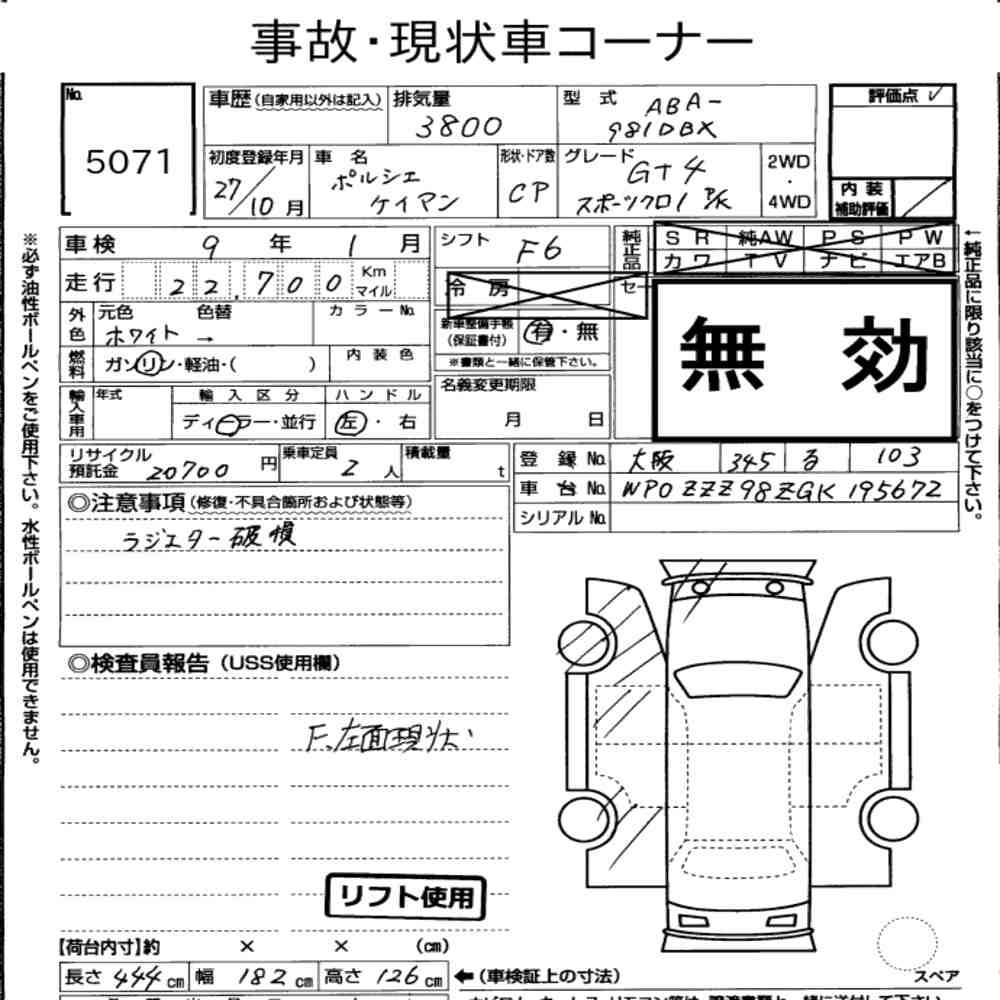 事故・現状車コーナー
No.
5071
車歴(自家用以外は記入)
排気量
3800
型 式
ABA-
981DBX
評価点
初度登録年月
27/10月
車 名
ポルシェ
ケイマン
形状・ドア数
CP
グレード
GT4
スポーツクロノPK
2WD
・
4WD
内 装
補助評価
車検 9 年 1 月
シフト F6
純正品
SR 純AW PS PW
カワ TV ナビ エアB
走行 22,700 Km マイル
冷 房
セー
外色
元色 色替 カラーNo.
ホワイト →
新車整備手帳
(保証書付)
有・無
※書類と一緒に保管下さい。
無 効
燃料
ガソリン・軽油・( )
内 装 色
輸入車用
年式
輸 入 区 分
ハ ン ド ル
ディーラー・並行
左・右
名義変更期限
月 日
リサイクル
預託金
20700円
乗車定員
2人
積載量
t
登 録 No. 大阪 345 る 103
車 台 No. WP0ZZZ98ZGK195672
シリアル No.
◎注意事項(修復・不具合箇所および状態等)
ラジエター破損
◎検査員報告(USS使用欄)
F、左面現状
リフト使用
【荷台内寸】約 × × (cm)
長さ 444cm 幅 182cm 高さ 126cm
←(車検証上の寸法)
スペア
※必ず油性ボールペンをご使用下さい。水性ボールペンは使用できません。
←純正品に限り該当に○をつけて下さい。